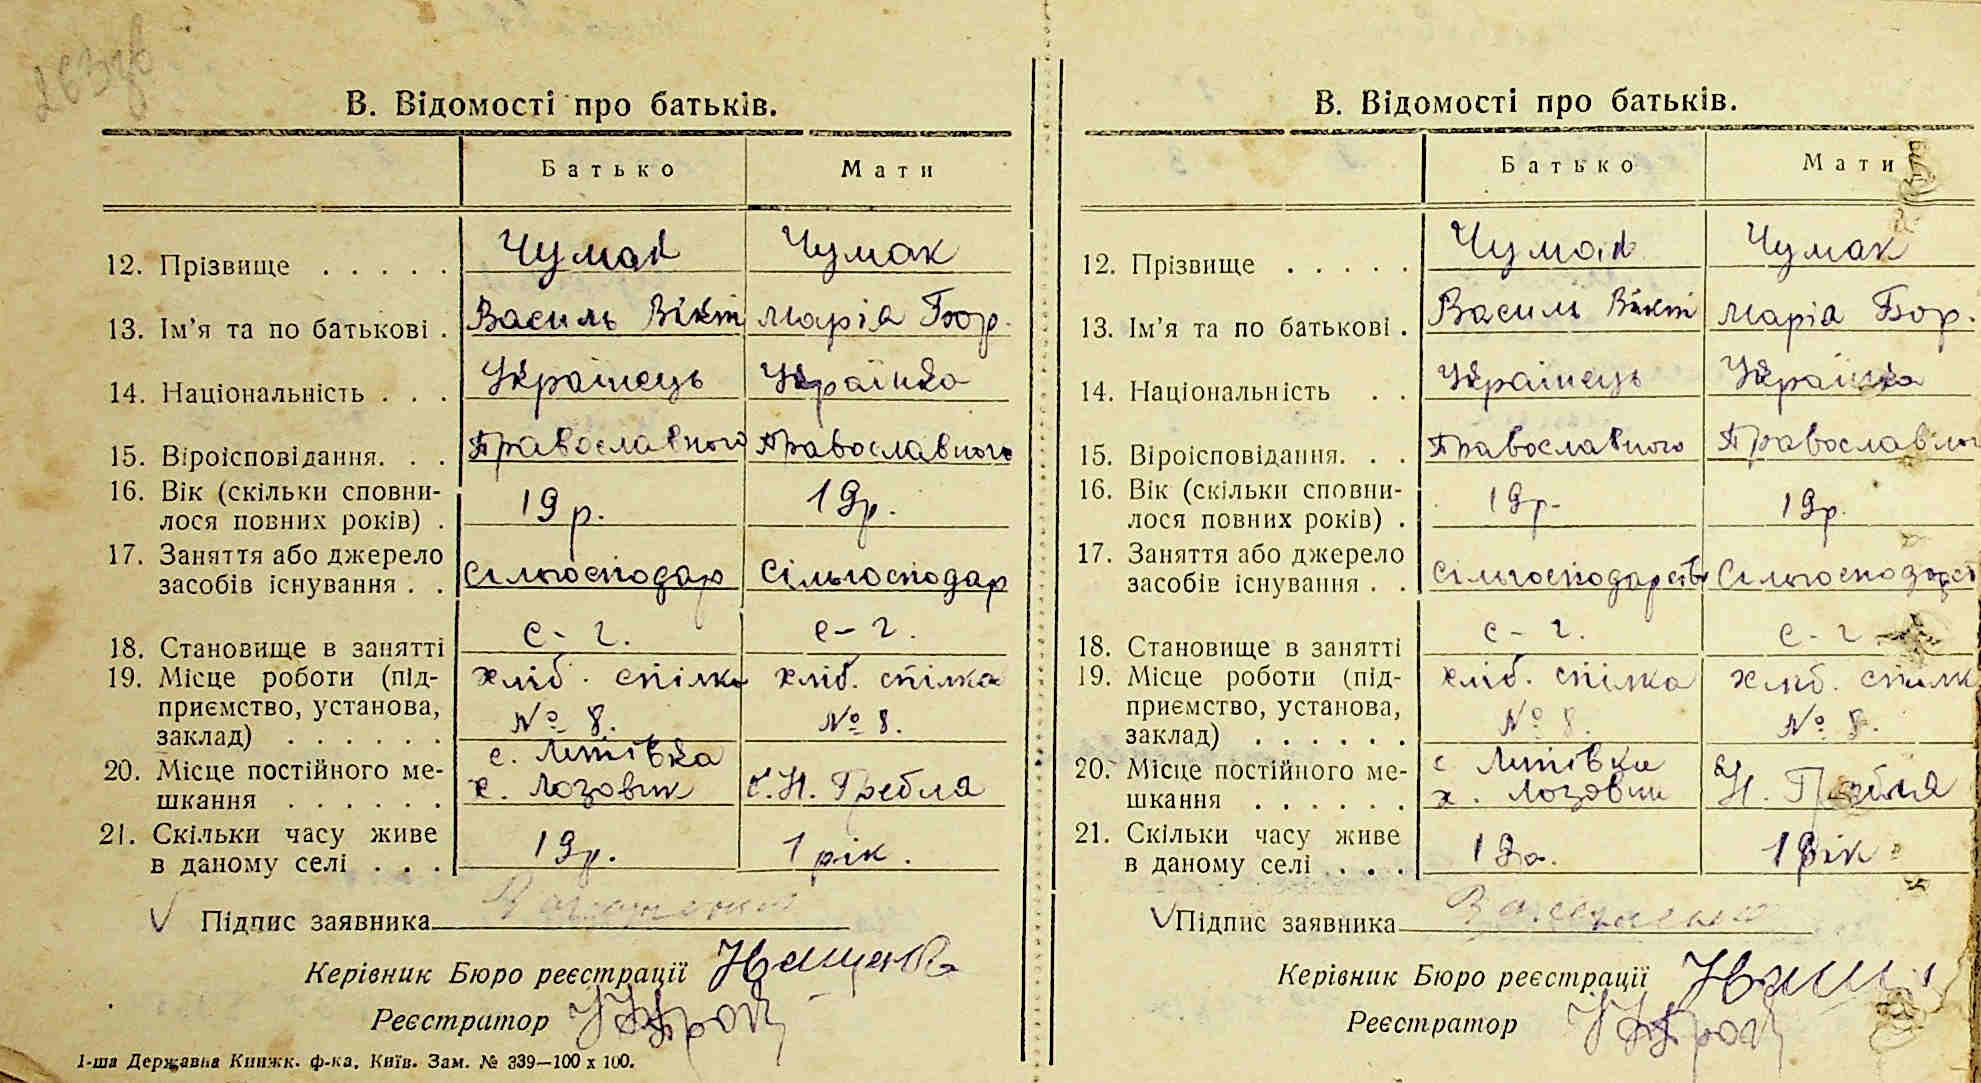 В. Відомості про батьків.
Батько Мати
12. Прізвище . . . . . Чумак Чумак
13. Ім'я та по батькові . Василь Вікт Марія Бор.
14. Національність . . . Українець Українка
15. Віроісповідання. . . Православного Православного
16. Вік (скільки сповни-
лося повних років) . 19 р. 19 р.
17. Заняття або джерело
засобів існування . . Сільгосподар Сільгосподар
18. Становище в занятті с-г. с-г.
19. Місце роботи (під- хліб. спілка хліб. спілка
приємство, установа, № 8. № 8.
заклад) . . . . . .
20. Місце постійного ме- с. Липівка
шкання . . . . . . х. Лозовик с. Н. Гребля
21. Скільки часу живе
в даному селі . . . 19 р. 1 рік.
Підпис заявника
Керівник Бюро реєстрації
Реєстратор
1-ша Державна Книжк. ф-ка, Київ. Зам. № 339—100 х 100.
В. Відомості про батьків.
Батько Мати
12. Прізвище . . . . . Чумак Чумак
13. Ім'я та по батькові . Василь Вікт Марія Бор.
14. Національність . . Українець Українка
15. Віроісповідання. . . Православного Православного
16. Вік (скільки сповни-
лося повних років) . 19 р. 19 р.
17. Заняття або джерело
засобів існування . . Сільгосподарств Сільгосподарст
18. Становище в занятті с-г. с-г
19. Місце роботи (під- хліб. спілка хліб. спілк
приємство, установа, № 8. № 8.
заклад) . . . . . .
20. Місце постійного ме- с Липівка
шкання . . . . . . х. Лозовик Н. Гребля
21. Скільки часу живе
в даному селі . . . 19 р. 1 рік
Підпис заявника
Керівник Бюро реєстрації
Реєстратор